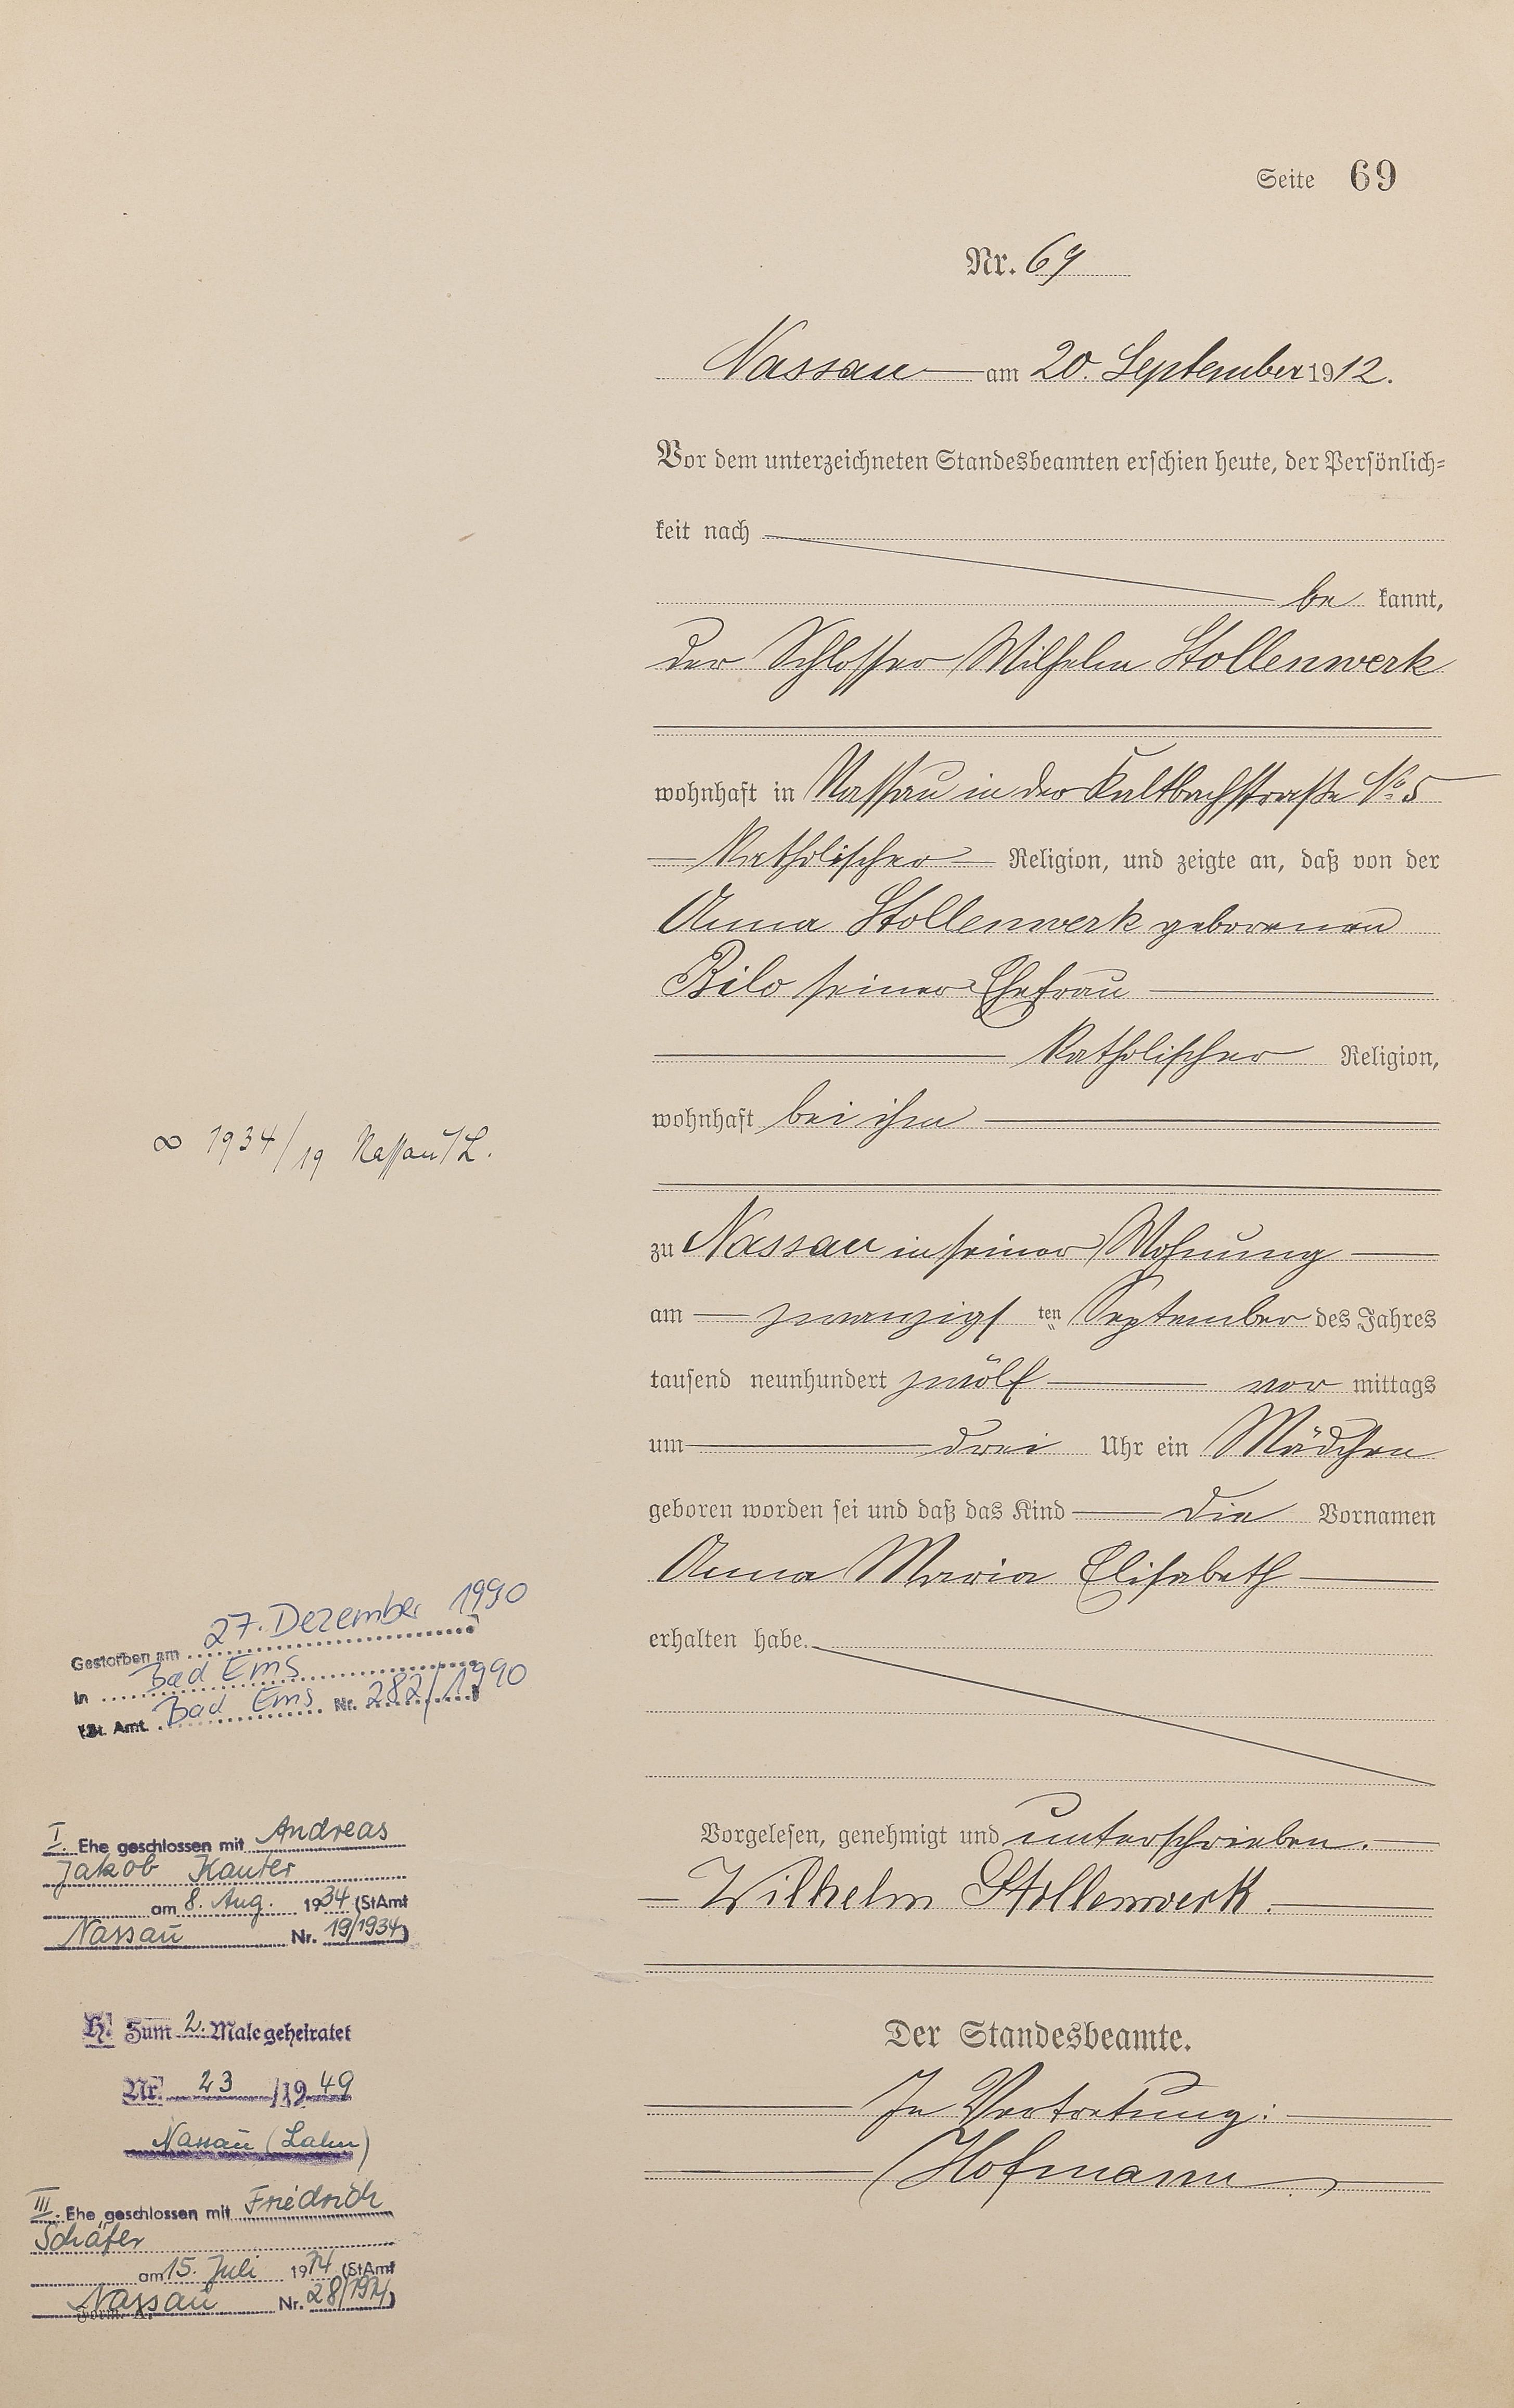 Seite 69
Nr. 69
Nassau am 20. September 1912.
Vor dem unterzeichneten Standesbeamten erschien heute, der Persönlich=
keit nach
be kannt,
der Schlosser Wilhelm Stollenwerk
wohnhaft in Nassau in der Kaltbachstraße No 5
Katholischer Religion, und zeigte an, daß von der
Anna Stollenwerk geborenen
Bilo seiner Ehefrau
Katholischer Religion,
wohnhaft bei ihm
∞ 1934/19 Nassau/L.
zu Nassau in seiner Wohnung
am zwanzigs ten September des Jahres
tausend neunhundert zwölf vor mittags
um drei Uhr ein Mädchen
geboren worden sei und daß das Kind die Vornamen
Anna Maria Elisabeth
erhalten habe.
Gestorben am 27. Dezember 1990
in Bad Ems
(St. Amt. Bad Ems Nr. 282/1990
Vorgelesen, genehmigt und unterschrieben.
Wilhelm Stollenwerk.
I. Ehe geschlossen mit Andreas
Jakob Kauter
am 8. Aug. 1934 (StAmt
Nassau Nr. 19/1934)
Der Standesbeamte.
In Vertretung:
Hofmann
Zum 2. Male geheiratet
Nr. 23 /1949
Nassau (Lahn)
III. Ehe geschlossen mit Friedrich
Schäfer
am 15. Juli 1974 (StAmt
Nassau Nr. 28/1974)
Form. A.